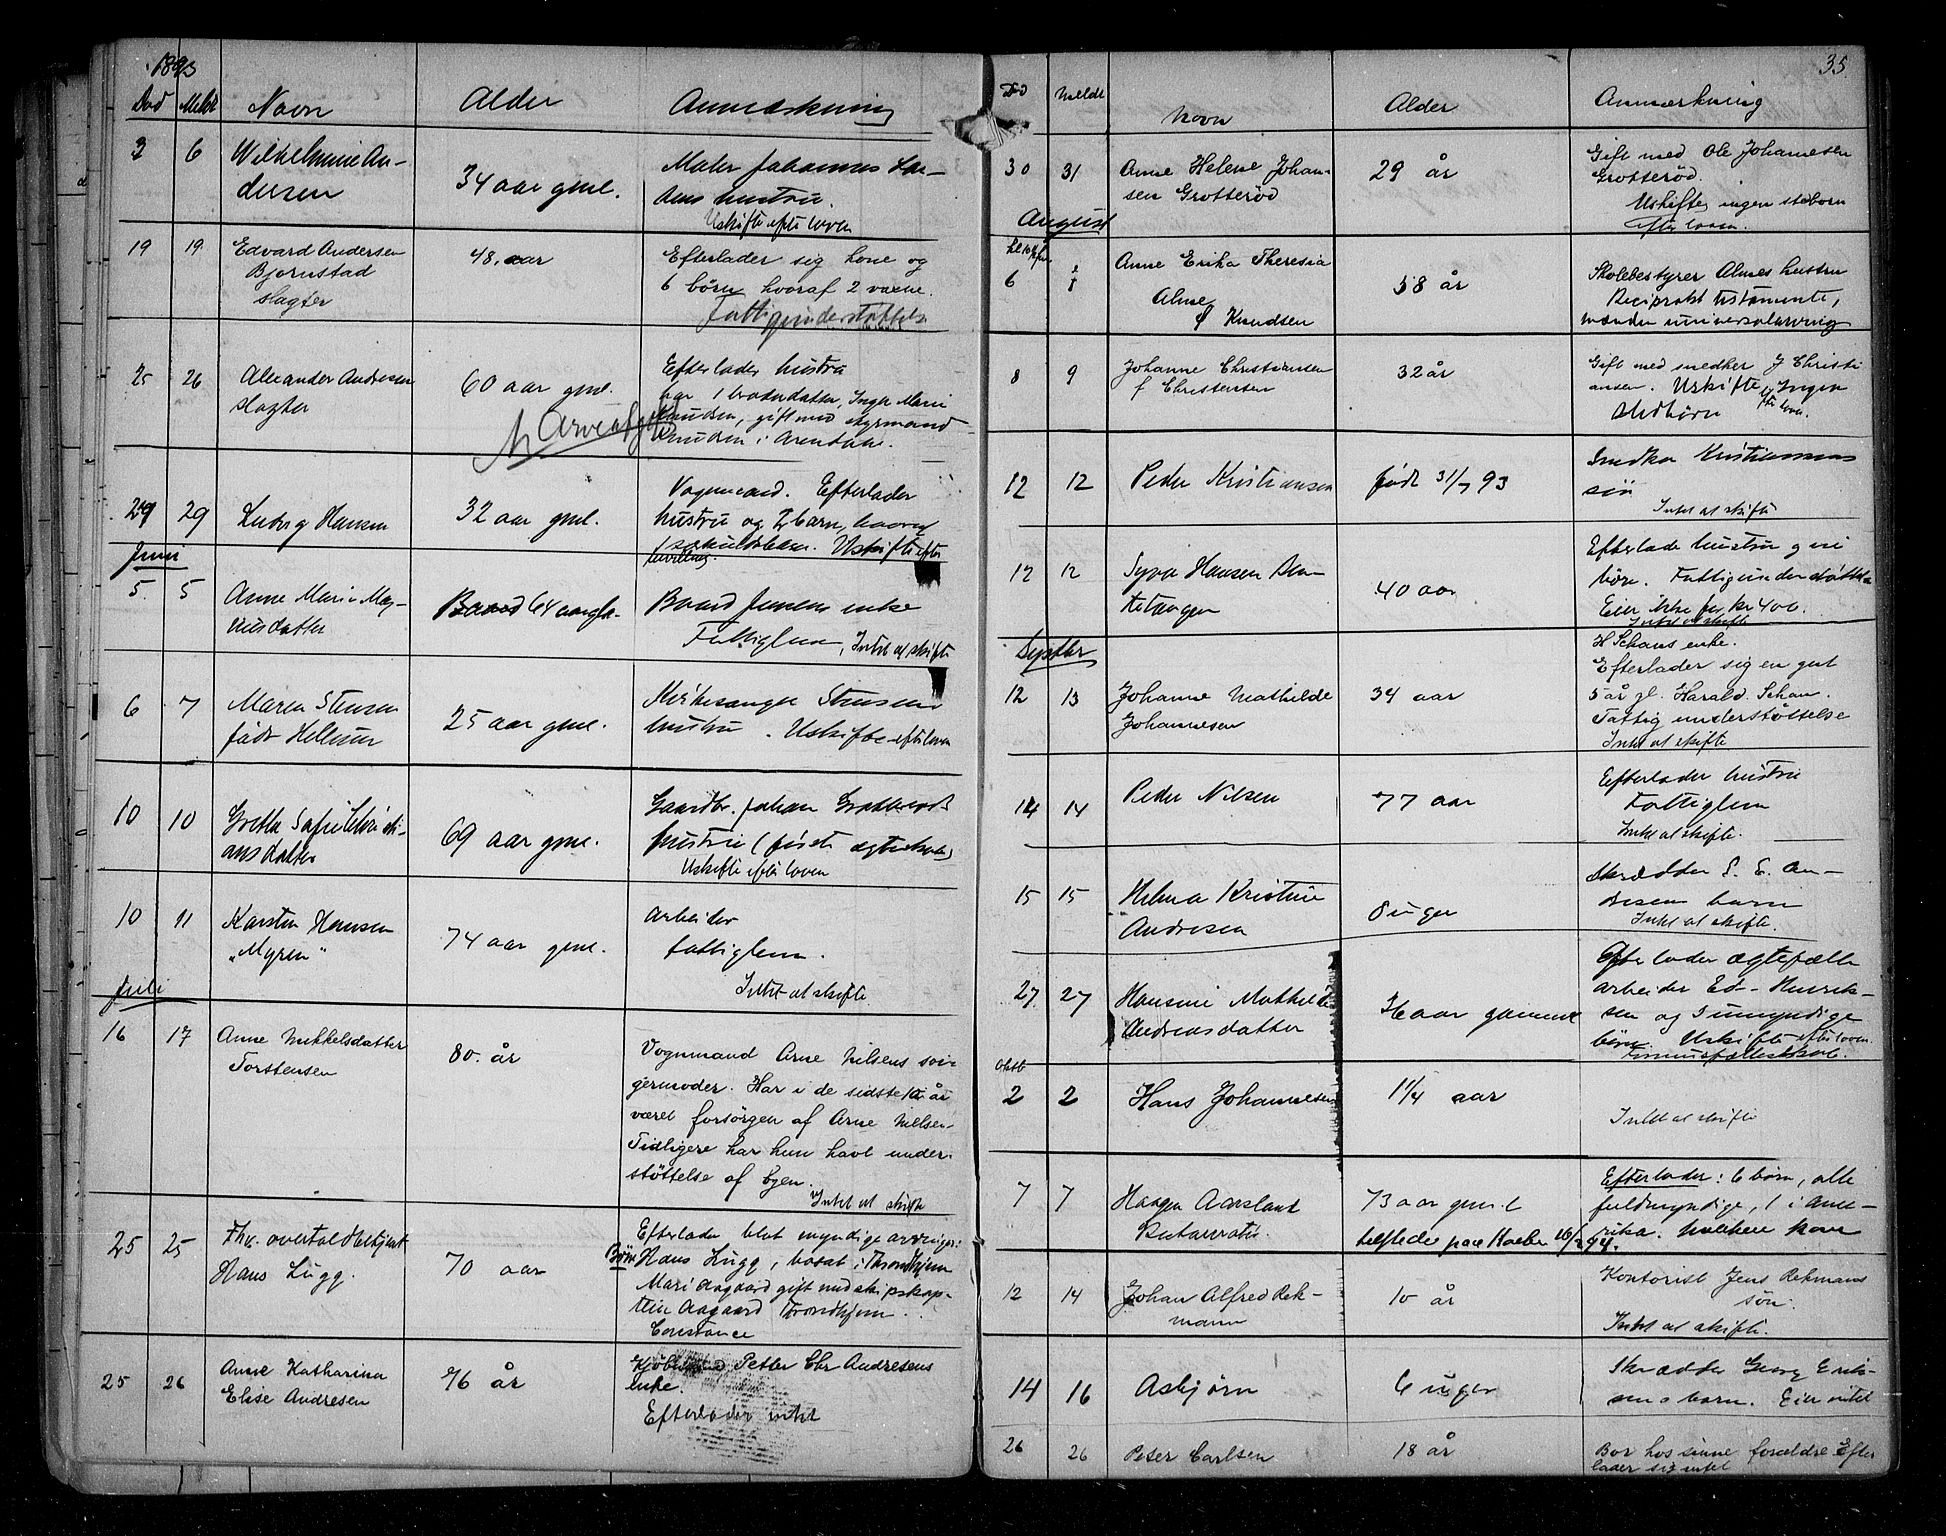 1893
Død Meldt Navn Alder Anmærkning
3 6 Wilhelmine An-
dersen
34 aar gml.
Maler Johannes
dens hustru.
Uskifte efter loven
19 19 Edvard Andersen
Bjørnstad
slagter
48. aar
Efterlader sig kone og
6 børn hvoraf 2 voxne.
Fattigunderstøttels
25 26 Alexander Andresen
slagter
60 aar gml.
Arveafgift
Efterlader hustru
har 1 broderdatter, Inger Marie
Knudsen, gift med styrmand
Knudsen i Arendal.
29 29 Ludvig Hansen
32 aar gml.
Vognmand. Efterlader
hustru og barn, hvoraf
Uskifte efter
Juni
5. 5 Anne Marie Mag-
nusdatter
64 aar
Baard Jensens enke
Fattiglem, Intet at skifte
6 7 Maren Stensen
født
25 aar gml.
Kirkesanger Stensens
hustru. Uskifte efter loven
10 10 Grethe Sofie Christi-
ansdatter
69 aar gml.
Gaardbr. Johan
hustru (første ægteskab)
Uskifte efter loven
10 11 Karsten Hansen
"Myren"
74 aar gml.
Arbeider
fattiglem.
Intet at skifte
Juli
16 17 Anne Mikkelsdatter
Torstensen
80. år
Vognmand Arne Nilsens svi-
germoder. Har i de sidste år
været forsørgen af Arne Nielsen.
Tidligere har hun havt under-
støttelse af byen.
Intet at skifte
25 25 Fhv. overtoldbetjent
Hans Lugg.
70 aar
Efterlader blot myndige arvinger:
Børn Hans Lugg, bosat i Trondhjem
Mari Aagaard gift med skipskap-
tein Aagaard Trondhjem.
Constance
25 26 Anne Katharina
Elise Andresen
76 år
Kjøbmand Petter Chr Andresens
enke.
Efterlader intet
35
Død Meldt Navn Alder Anmærkning
30 31 Anne Helene Johan-
sen Grotterød
29 år
Gift med Ole Johannesen
Grotterød.
Uskifte, ingen særborn
efter loven.
August
6 Anne Erika Theresia
Alme
f Knudsen
58 år
Skolebestyrer Almes hustru
Reciprokt testamente,
manden universalarving
8 9 Johanne Christiansen
f Christensen
32 år
Gift med snedker J Christi
ansen. Uskifte Ingen
efter loven.
12 12 Peder Kristiansen
født 31/7 93
Snedker Kristiansens
søn
Intet at skifte
12 12 Hansen
40 aar
Efterlader hustru og
børn. Fattigunderstøttelse
Eier ikke for kr 400.
Intet at skifte
Septbr
12 13 Johanne Mathilde
Johannesen
34 aar
H Schaus enke.
Efterlader sig en gut
5 år gl. Harald Schau.
Fattig understøttelse
Intet at skifte
14 14 Peder Nilsen
77 aar
Efterlader hustru
Fattiglem
Intet at skifte.
15 15 Helma Kristine
Andresen
8 uger
Skrædder S. E. An-
dresens barn
Intet at skifte.
27. 27 Hansine Mathilde
Andreasdatter
aar gammel
Efterlader ægtefælle
arbeider Ed- Henrik-
sen og umyndige
børn. Uskifte efter loven.
Oktb
2 2 Hans Johannesen
1 1/4 aar
Intet at skifte
7 7 Haagen Aarsland
73 aar gam.l
Efterlader: 6 børn, alle
fuldmyndige, 1 i Ame-
rika.
12 14 Johan Alfred Rek-
mann
10 år
Kontorist Jens Rekmans
søn.
Intet at skifte.
14 16 Asbjørn
6 uger
Skrædder Georg Erik-
sens barn. Eier intet
26 26 Peter Carlsen
18 år
Bor hos sine forældre Efter
lader sig intet